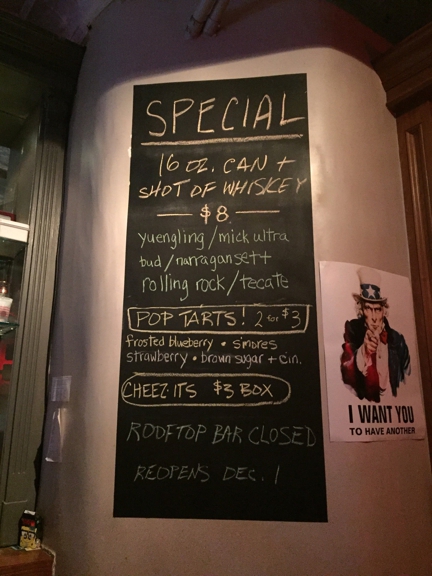 SPECIAL
16 OZ. CAN +
SHOT OF WHISKEY
— $8 —
yuengling / mick ultra
bud / narragansett
rolling rock / tecate
POP TARTS! 2 for $3
frosted blueberry • s'mores
strawberry • brown sugar + cin.
CHEEZ-ITS $3 BOX
ROOFTOP BAR CLOSED
REOPENS DEC. 1
I WANT YOU
TO HAVE ANOTHER